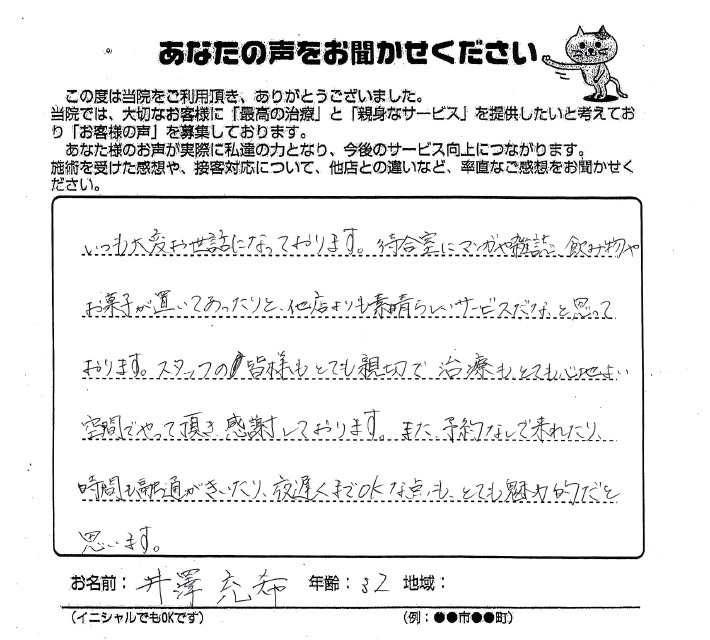 あなたの声をお聞かせください
この度は当院をご利用頂き、ありがとうございました。
当院では、大切なお客様に「最高の治療」と「親身なサービス」を提供したいと考えてお
り「お客様の声」を募集しております。
あなた様のお声が実際に私達の力となり、今後のサービス向上につながります。
施術を受けた感想や、接客対応について、他店との違いなど、率直なご感想をお聞かせく
ださい。
いつも大変お世話になっております。待合室にマンガや雑誌、飲み物や
お菓子が置いてあったりと、他店よりも素晴らしいサービスだな、と思って
おります。スタッフの皆様もとても親切で治療も、とても心地よい
空間でやって頂き感謝しております。また、予約なしで来れたり、
時間も融通がきいたり、夜遅くまでOKな点も、とても魅力的だと
思います。
お名前：井澤充希 年齢：32 地域：
（イニシャルでもOKです） （例：●●市●●町）